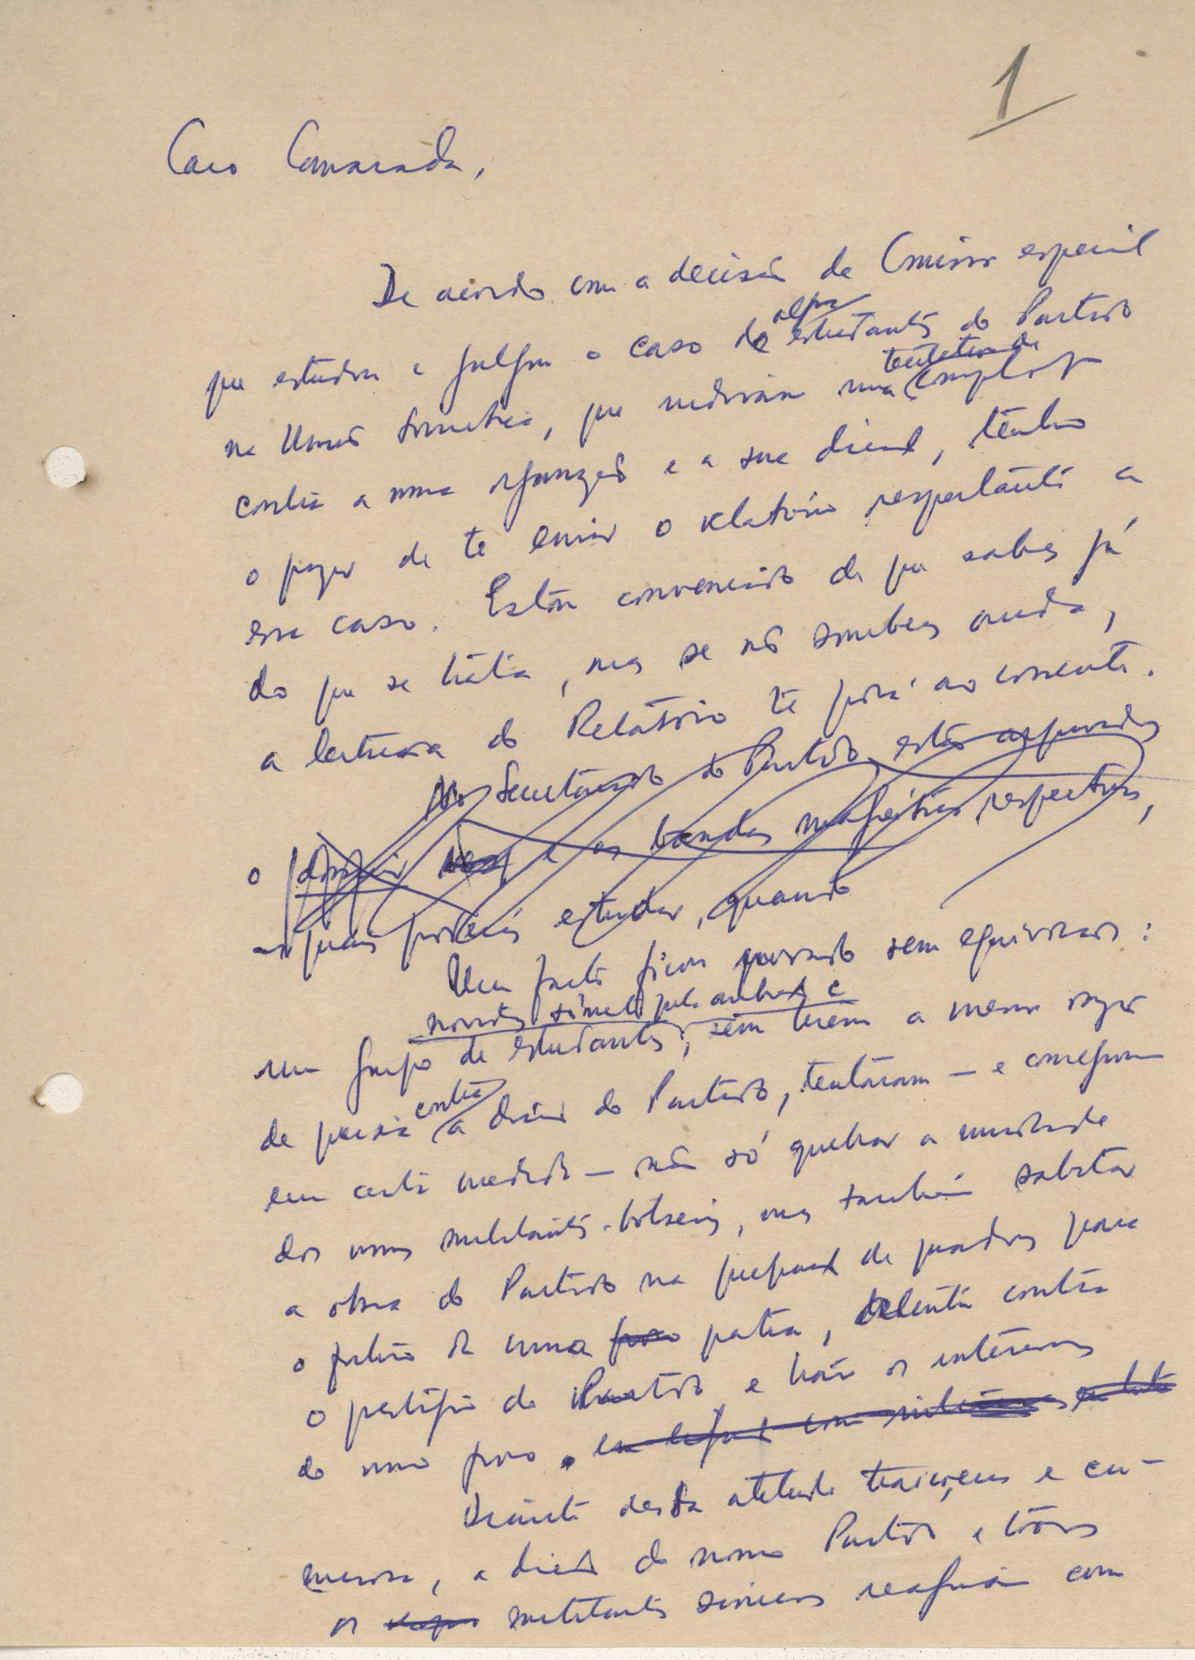 1
Caro Camarada,
De acordo com a decisão da Comissão especial
que estudou e julgou o caso de alguns estudantes do Partido
na União Soviética, que urdiram uma tentativa de complot
contra a nossa organização e a sua direcção, tenho
o prazer de te enviar o relatório respeitante a
esse caso. Estou convencido de que sabes já
do que se trata, mas se não souberes ainda,
a leitura do Relatório te porá ao corrente.
No Secretariado do Partido estão arquivados
o dossier e as bandas magnéticas respectivas,
as quais poderás estudar, quando
Um facto ficou provado sem equívocos:
movidos pela ambição e
um grupo de estudantes, sem terem a menor razão
de queixa contra a direcção do Partido, tentaram — e conseguiram
em certa medida — não só quebrar a unidade
dos nossos militantes-bolseiros, mas também sabotar
a obra do Partido na preparação de quadros para
o futuro da nossa povo pátria, atentar contra
o prestígio do Partido e trair os interesses
do nosso povo.
Diante desta atitude traiçoeira e cri-
minosa, a direcção do nosso Partido e todos
os militantes sinceros reagiram com